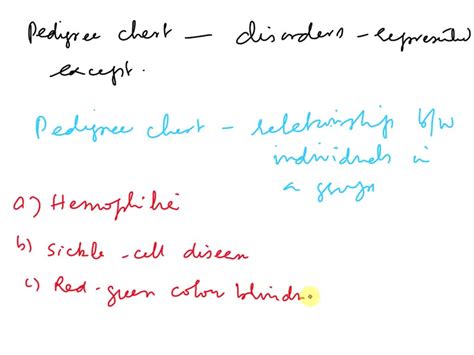 Pedigree chart — disorders - represented
except.
Pedigree chart - relationship b/w
individuals in
a
a) Hemophilia
b) Sickle-cell disease
c) Red-green colour blindn